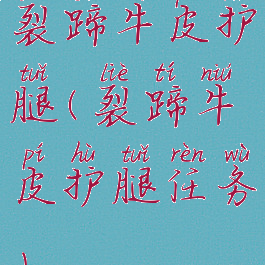 裂蹄牛皮护
tuǐ liè tí niú
腿(裂蹄牛
pí hù tuǐ rèn wù
皮护腿任务
)